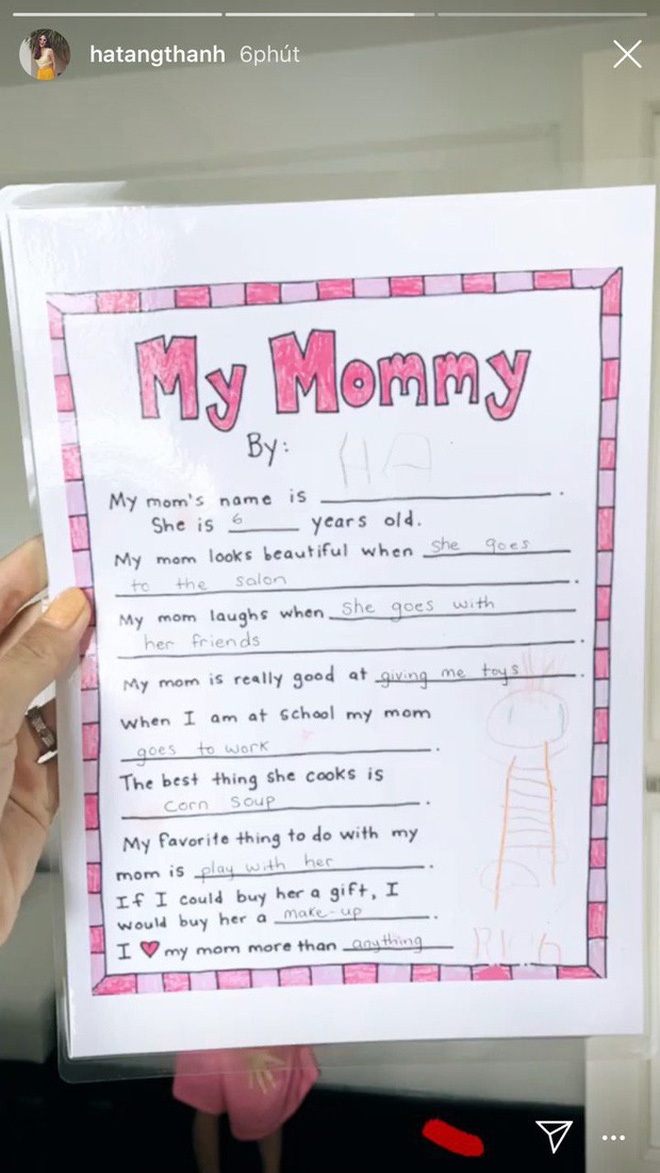 hatangthanh 6phút
My Mommy
By:
HA
My mom's name is ____________.
She is 6 years old.
My mom looks beautiful when she goes
to the salon.
My mom laughs when she goes with
her friends.
My mom is really good at giving me toys.
When I am at school my mom
goes to work.
The best thing she cooks is
corn soup.
My favorite thing to do with my
mom is play with her.
If I could buy her a gift, I
would buy her a make-up.
I ♥ my mom more than anything